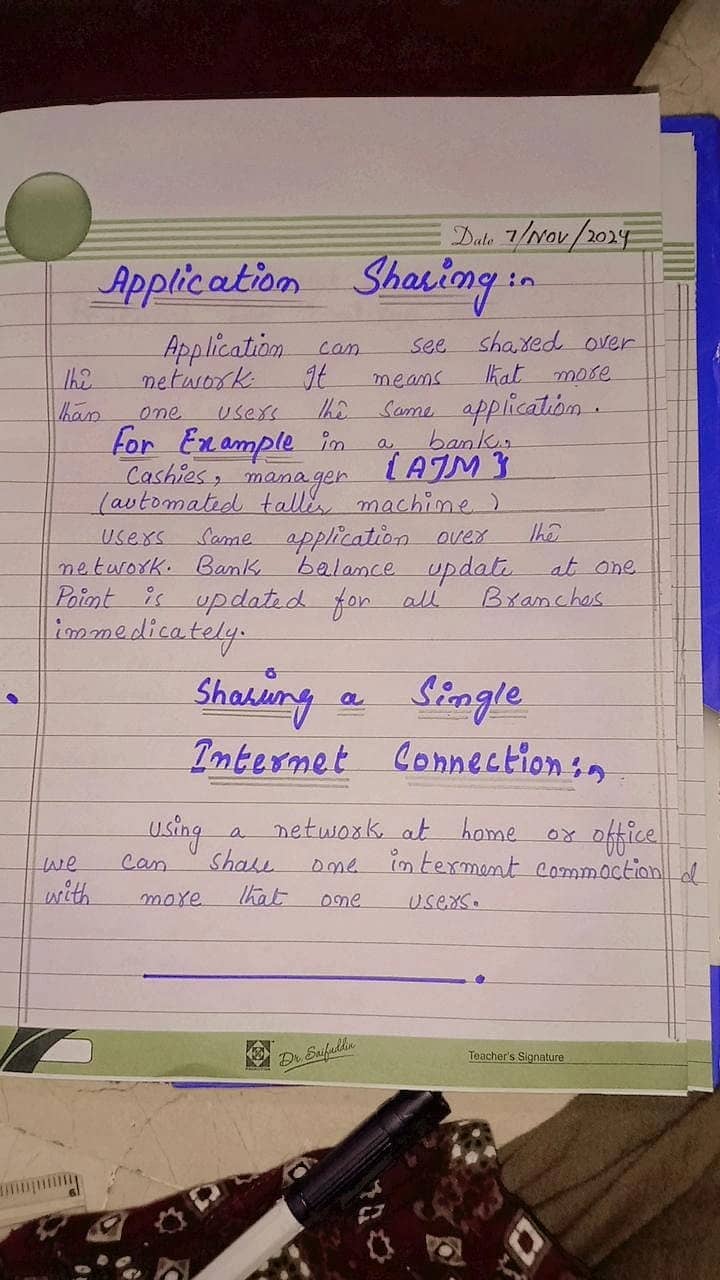 Date 7/Nov/2024
Application Sharing:~
Application can see shared over
the network. It means that more
than one users the same application.
For Example in a bank,
Cashies, manager {ATM}
(automated taller machine)
users same application over the
network. Bank balance update at one
Point is updated for all Branches
immedicately.
Sharing a Single
Internet Connection:~
Using a network at home or office
we can share one interment commoction d
with more that one users.
Dr. Saifuddin
Teacher's Signature